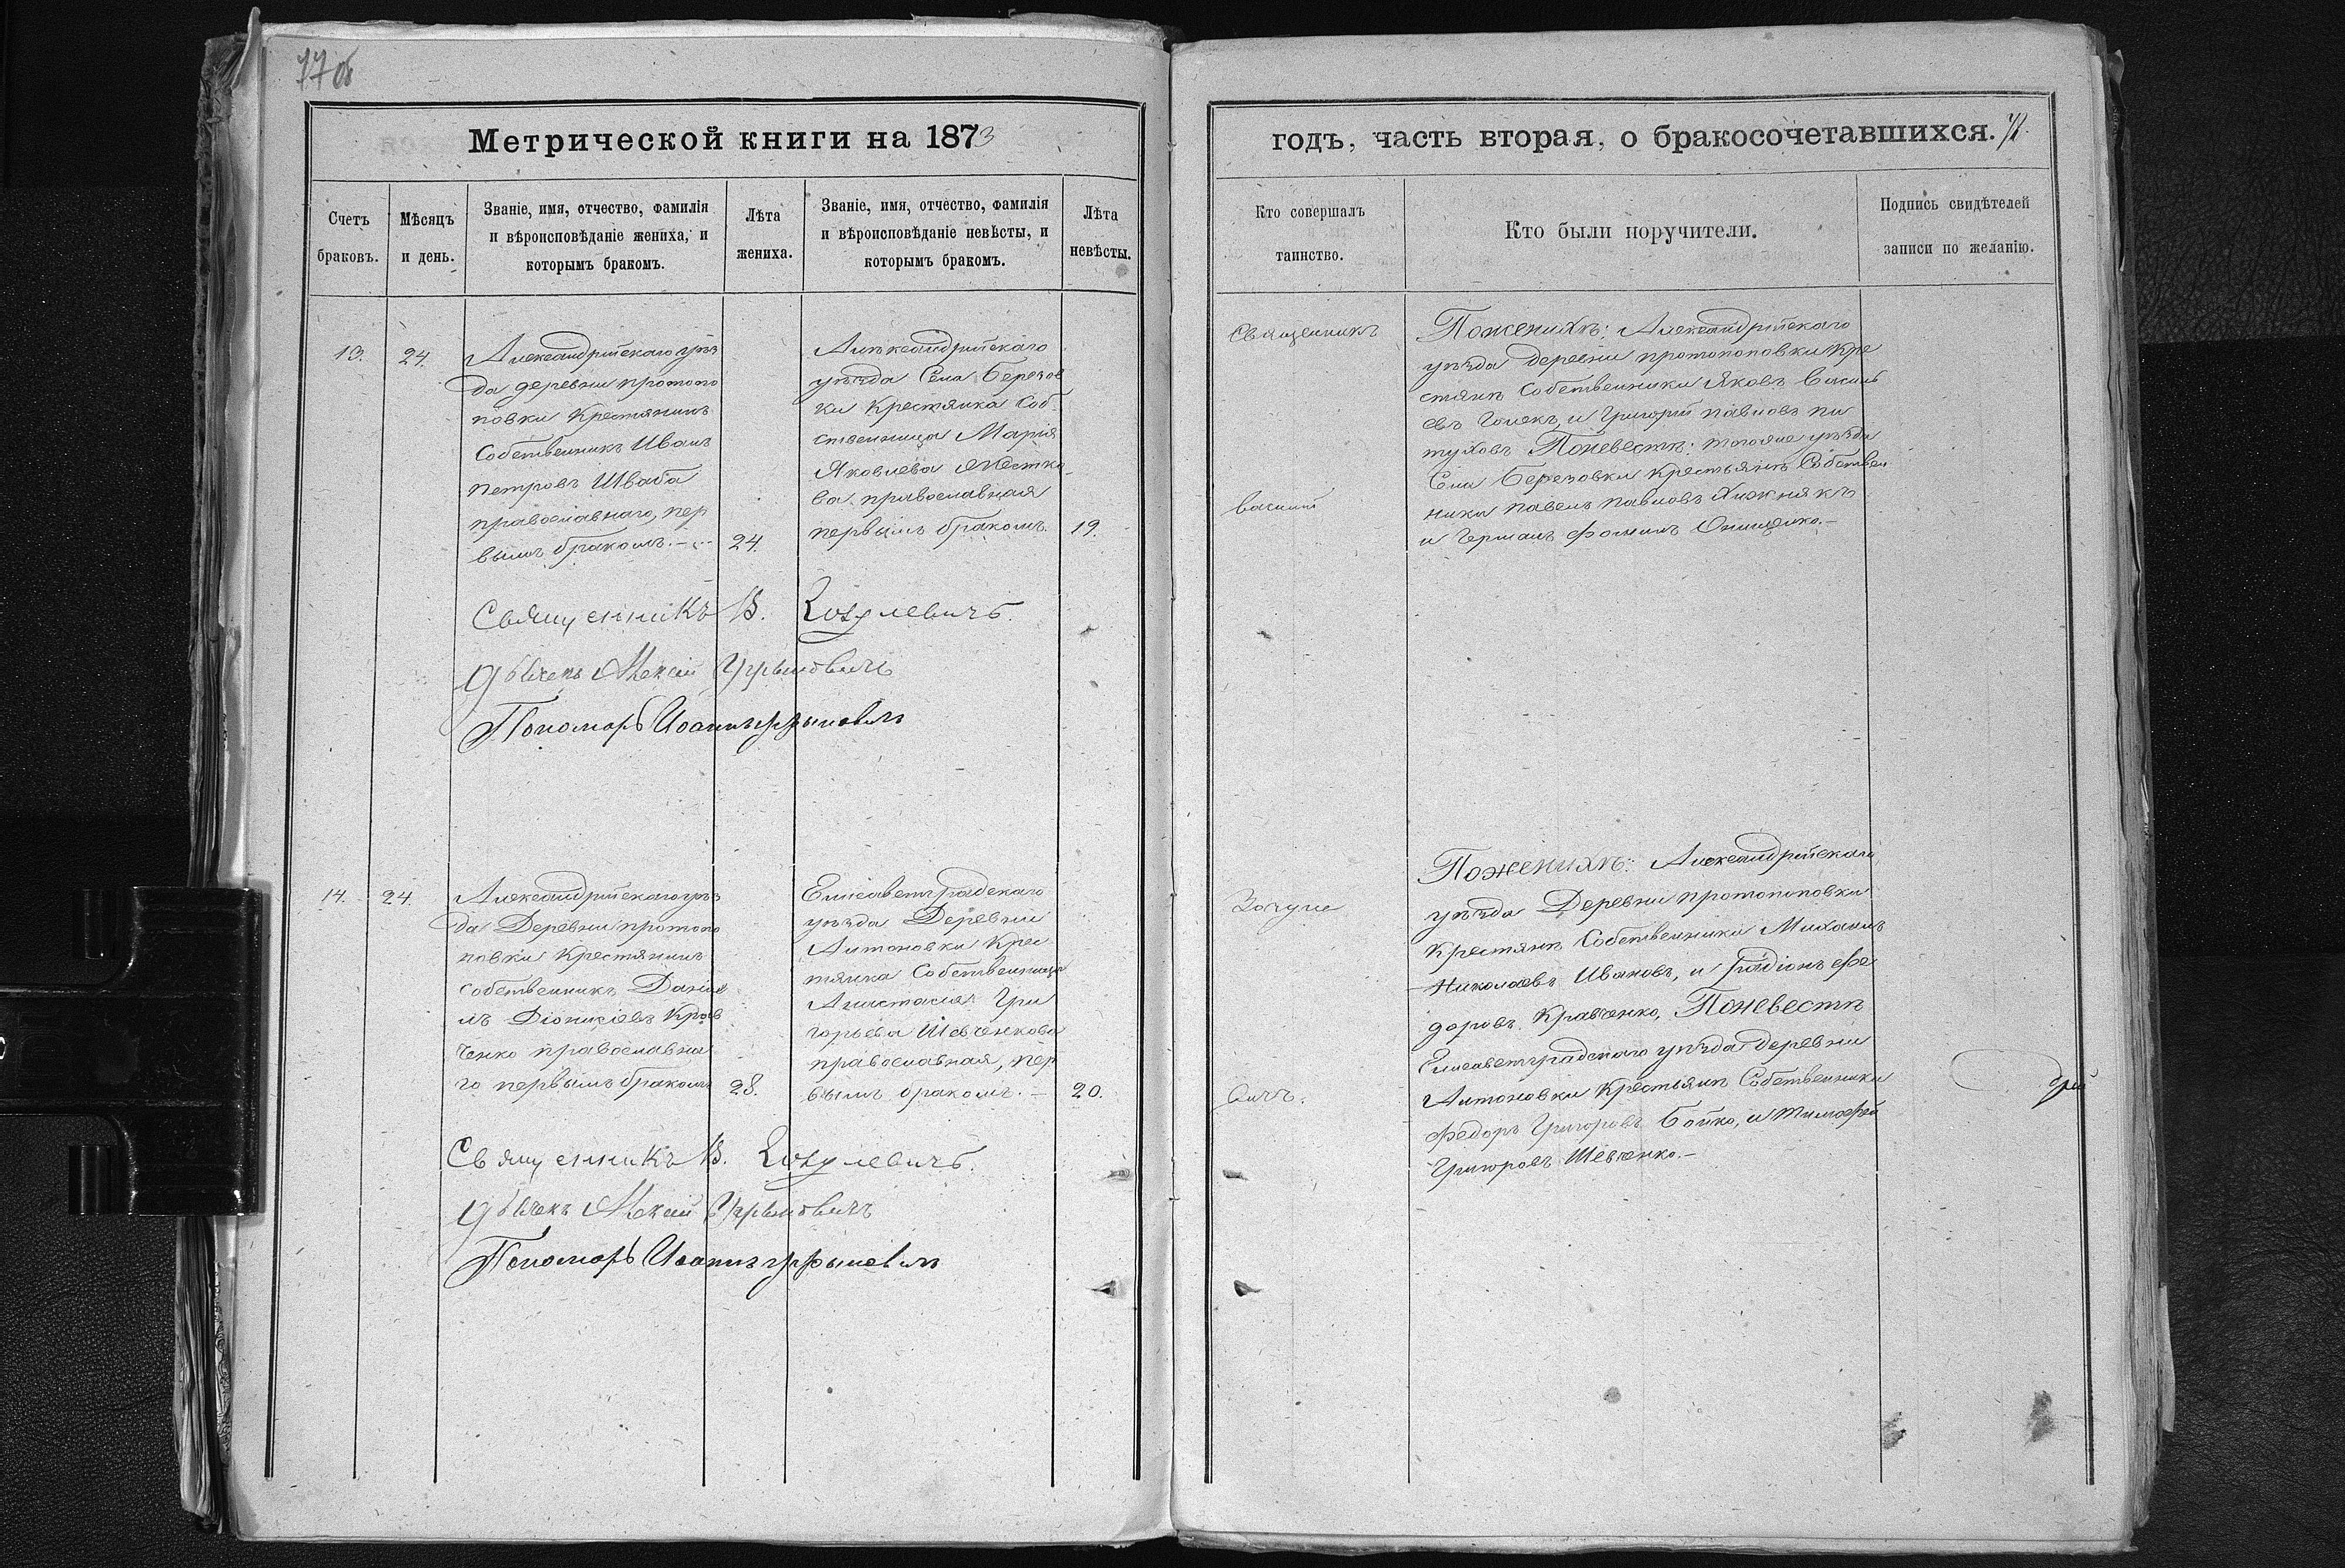 77об
Метрической книги на 1873
Счетъ браковъ.
Мѣсяцъ и день.
Званіе, имя, отчество, фамилія и вѣроисповѣданіе жениха, и которымъ бракомъ.
Лѣта жениха.
Званіе, имя, отчество, фамилія и вѣроисповѣданіе невѣсты, и которымъ бракомъ.
Лѣта невѣсты.
13.
24.
Александрійскаго уѣз
да деревни протопо
повки Крестянинъ
Собственникъ Иванъ
Петровъ Шваба
православнаго, пер
вымъ бракомъ.—
24.
Александрійскаго
уѣзда Села Березов
ки Крестянка Соб
ственница Марія
Яковлева
ва православная
первымъ бракомъ.
19.
Священникъ В. Козулевичъ.
Дьячекъ Алексѣй Угриновичъ
Пономарь Иоаннъ Угриновичъ
14.
24.
Александрійскаго уѣз
да Деревни протопо
повки Крестянинъ
Собственникъ Дании
лъ Діонисіевъ Крав
ченко православна
го первымъ бракомъ
28.
Елисаветградскаго
уѣзда Деревни
Антоновки Крес
тянка Собственница
Анастасія Гри
горьева Шевченкова
православная, пер
вымъ бракомъ.—
20.
Священникъ В. Козулевичъ.
Дьячекъ Алексѣй Угриновичъ
Пономарь Иоаннъ Угриновичъ
годъ, часть вторая, о бракосочетавшихся.
Кто совершалъ таинство.
Кто были поручители.
Подпись свидѣтелей записи по желанію.
Священникъ
Василій
Козуле
вичъ.
По женихѣ: Александрійскаго
уѣзда деревни протопоповки Кре
стянѣ Собственники Яковъ Василь
евъ и Григорій павловъ пи
туховъ По невестѣ: тогоже уѣзда
Села Березовки Крестьянѣ Собствен
ники павелъ павловъ Хижнякъ
и Герман Фоминъ Онищенко.—
По женихѣ: Александрійскаго
уѣзда Деревни протопоповки
Крестянѣ Собственники Михаилъ
Николаевъ Ивановъ, и Радіонъ Фе
доровъ Кравченко, По невестѣ
Елисаветградскаго уѣзда Деревни
Антоновки Крестьянѣ Собственники
Федоръ Григоровъ Бойко, и Тимофѣй
Григоровъ Шевченко.—